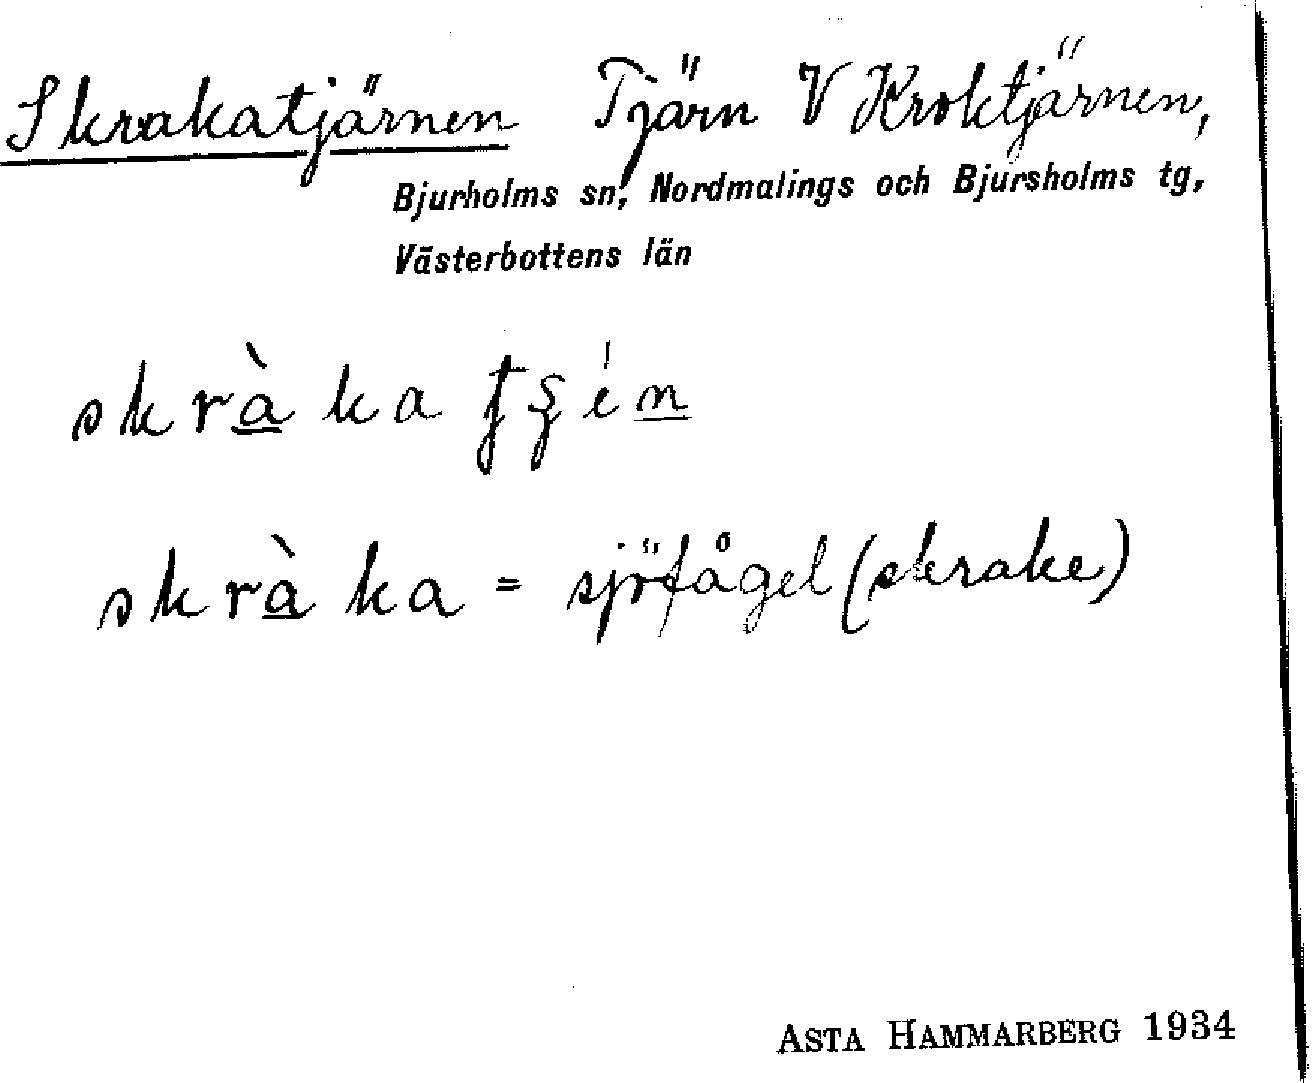 Skrakatjärnen Tjärn V Kroktjärnen,
Bjurholms sn, Nordmalings och Bjursholms tg,
Västerbottens län
skràka
skràka = sjöfågel (skrake)
ASTA HAMMARBERG 1934